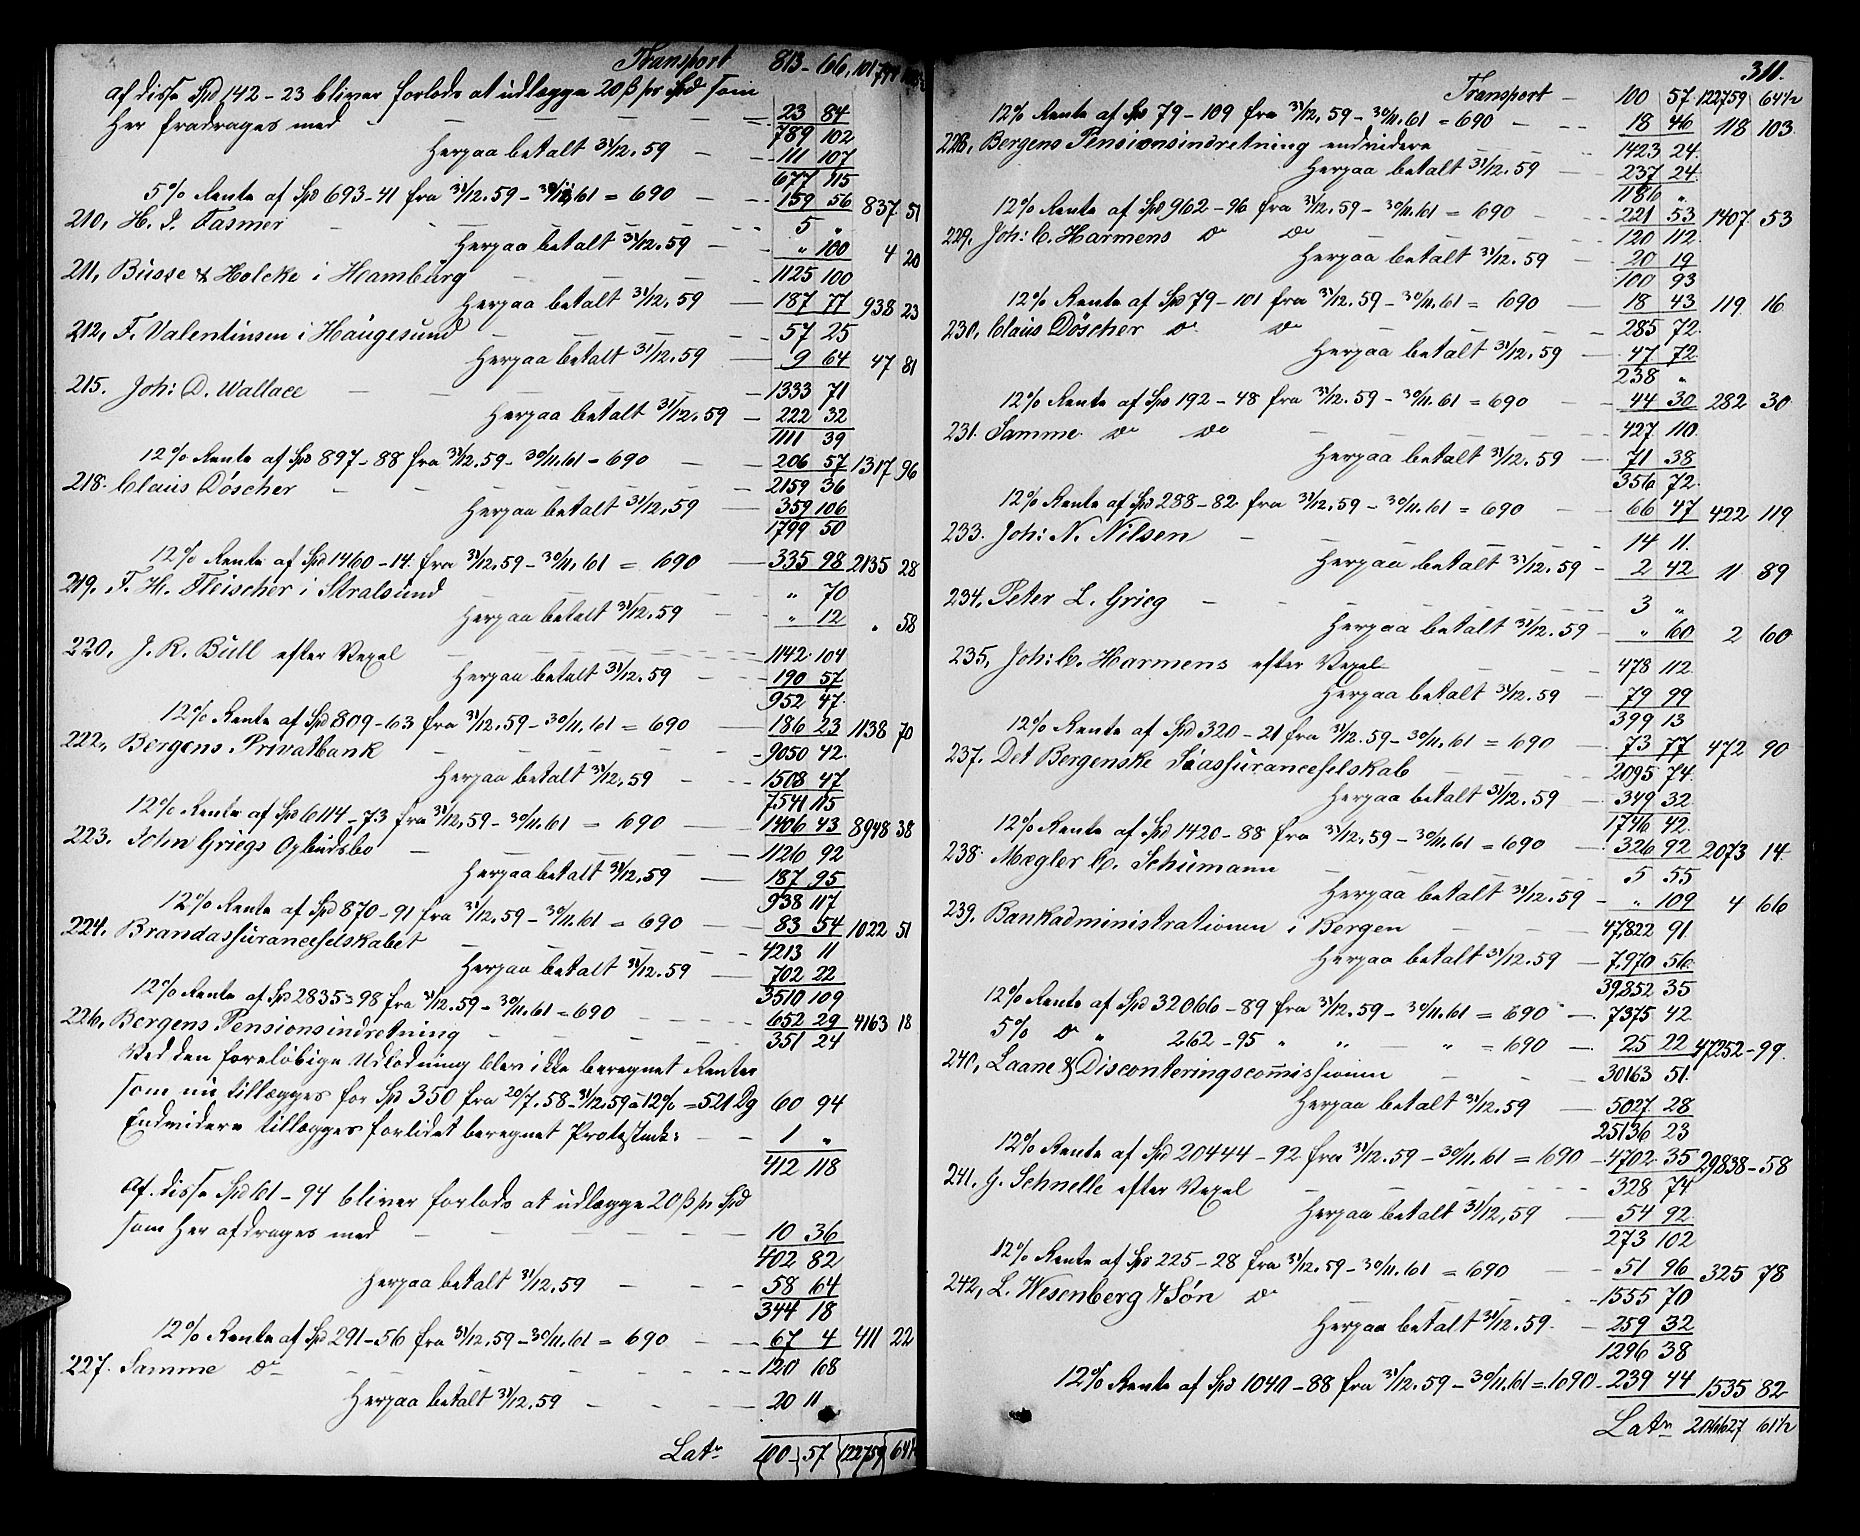 Transport 813 - 66, 101
af disse Spd 142 - 23 bliver forlods at udlægge 20 ß pr Spd som
her fradrages med 23 84
789 102
Herpaa betalt 31/12. 59 111 107
677 115
5% Rente af Spd 693-41 fra 31/12.59 - 30/11.61 = 690 159 56 837 51
210, H. J. Fasmer 5 "
Herpaa betalt 31/12.59 " 100 4 20
211, Busse & Holcke i Hamburg 1125 100
Herpaa betalt 31/12.59 187 77 938 23
212, F. Valentinsen i Haugesund 57 25
Herpaa betalt 31/12.59 9 64 47 81
215. Joh: D. Wallace 1333 71
Herpaa betalt 31/12.59 222 32
1111 39
12% Rente af Spd 897-88 fra 31/12.59 - 30/11.61 = 690 206 57 1317 96
218. Claus Döscher 2159 36
Herpaa betalt 31/12.59 359 106
1799 50
12% Rente af Spd 1460-14. fra 31/12.59 - 30/11.61 = 690 335 98 2135 28
219. F. H. Fleischer i Stralsund " 70
Herpaa betalt 31/12.59 " 12 " 58
220, J. R. Bull efter Vexel 1142 104
Herpaa betalt 31/12.59 190 57
952 47
12% Rente af Spd 809-63 fra 31/12.59 - 30/11.61 = 690 186 23 1138 70
222, Bergens Privatbank 9050 42
Herpaa betalt 31/12.59 1508 47
7541 115
12% Rente af Spd 6114-73 fra 31/12.59 - 30/11.61 = 690 1406 43 8948 38
223. John Griegs Opbudsbo 1126 92
Herpaa betalt 31/12.59 187 95
938 117
12% Rente af Spd 870-91 fra 31/12.59 - 30/11.61 = 690 83 54 1022 51
224. Brandassuranceselskabet 4213 11
Herpaa betalt 31/12.59 702 22
3510 109
12% Rente af Spd 2835-98 fra 31/12.59 - 30/11.61 = 690 652 29 4163 18
226, Bergens Pensionsindretning 351 24
Ved den foreløbige Udlodning blev ikke beregnet Renter
som nu tillægges for Spd 350 fra 20/7.58 - 31/12.59 a 12% = 521 Dg 60 94
Endvidere tillægges forlidet beregnet 1 "
412 118
Af disse Spd 61-94 bliver forlods at udlægge 20 ß pr Spd
som her afdrages med 10 36
402 82
Herpaa betalt 31/12.59 58 64
344 18
12% Rente af Spd 291-56 fra 31/12.59 - 30/11.61 = 690 67 4 411 22
227. Samme do 120 68
Herpaa betalt 31/12.59 20 11
Latr 100 57 122759 64½
311.
Transport 100 57 122759 64½
12% Rente af Spd 79-109 fra 31/12.59 - 30/11.61 = 690 18 46 118 103
228, Bergens Pensionsindretning endvidere 1423 24
Herpaa betalt 31/12.59 237 24
1186 "
12% Rente af Spd 962-96 fra 31/12.59 - 30/11.61 = 690 221 53 1407 53
229, Joh: C. Harmens do do 120 112
Herpaa betalt 31/12.59 20 19
100 93
12% Rente af Spd 79-101 fra 31/12.59 - 30/11.61 = 690 18 43 119 16
230, Claus Döscher do do 285 72
Herpaa betalt 31/12.59 47 72
238 "
12% Rente af Spd 192-48 fra 31/12.59 - 30/11.61 = 690 44 30 282 30
231. Samme do do 427 110
Herpaa betalt 31/12.59 71 38
356 72
12% Rente af Spd 288-82 fra 31/12.59 - 30/11.61 = 690 66 47 422 119
233. Joh: N. Nilsen 14 11
Herpaa betalt 31/12.59 2 42 11 89
234, Peter L. Grieg 3 "
Herpaa betalt 31/12.59 " 60 2 60
235, Joh: C. Harmens efter Vexel 478 112
Herpaa betalt 31/12.59 79 99
399 13
12% Rente af Spd 320-21 fra 31/12.59 - 30/11.61 = 690 73 77 472 90
237. Det Bergenske Søassuranceselskab 2095 74
Herpaa betalt 31/12.59 349 32
1746 42
12% Rente af Spd 1420-88 fra 31/12.59 - 30/11.61 = 690 326 92 2073 14
238. Mægler C. Schumann 5 55
Herpaa betalt 31/12.59 " 109 4 66
239. Bankadministrationen i Bergen 47822 91
Herpaa betalt 31/12.59 7970 56
39852 35
12% Rente af Spd 32066-89 fra 31/12.59 - 30/11.61 = 690 7375 42
5% do " 262-95 " " - " = 690 25 22 47252 - 99
240, Laane & Disconteringscommissionen 30163 51
Herpaa betalt 31/12.59 5027 28
25136 23
12% Rente af Spd 20444-92 fra 31/12.59 - 30/11.61 = 690 4702 35 29838 - 58
241. J. Schnelle efter Vexel 328 74
Herpaa betalt 31/12.59 54 92
273 102
12% Rente af Spd 225-28 fra 31/12.59 - 30/11.61 = 690 51 96 325 78
242, L. Wesenberg & Søn do 1555 70
Herpaa betalt 31/12.59 259 32
1296 38
12% Rente af Spd 1041-88 fra 31/12.59 - 30/11.61 = 690 239 44 1535 82
Latr 206627 61½